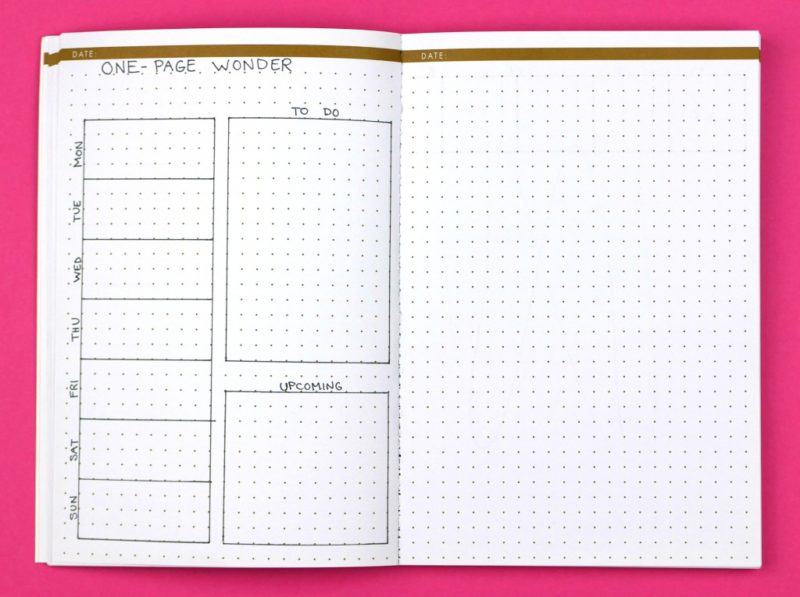 DATE:
ONE-PAGE WONDER
MON
TUE
WED
THU
FRI
SAT
SUN
TO DO
UPCOMING
DATE: